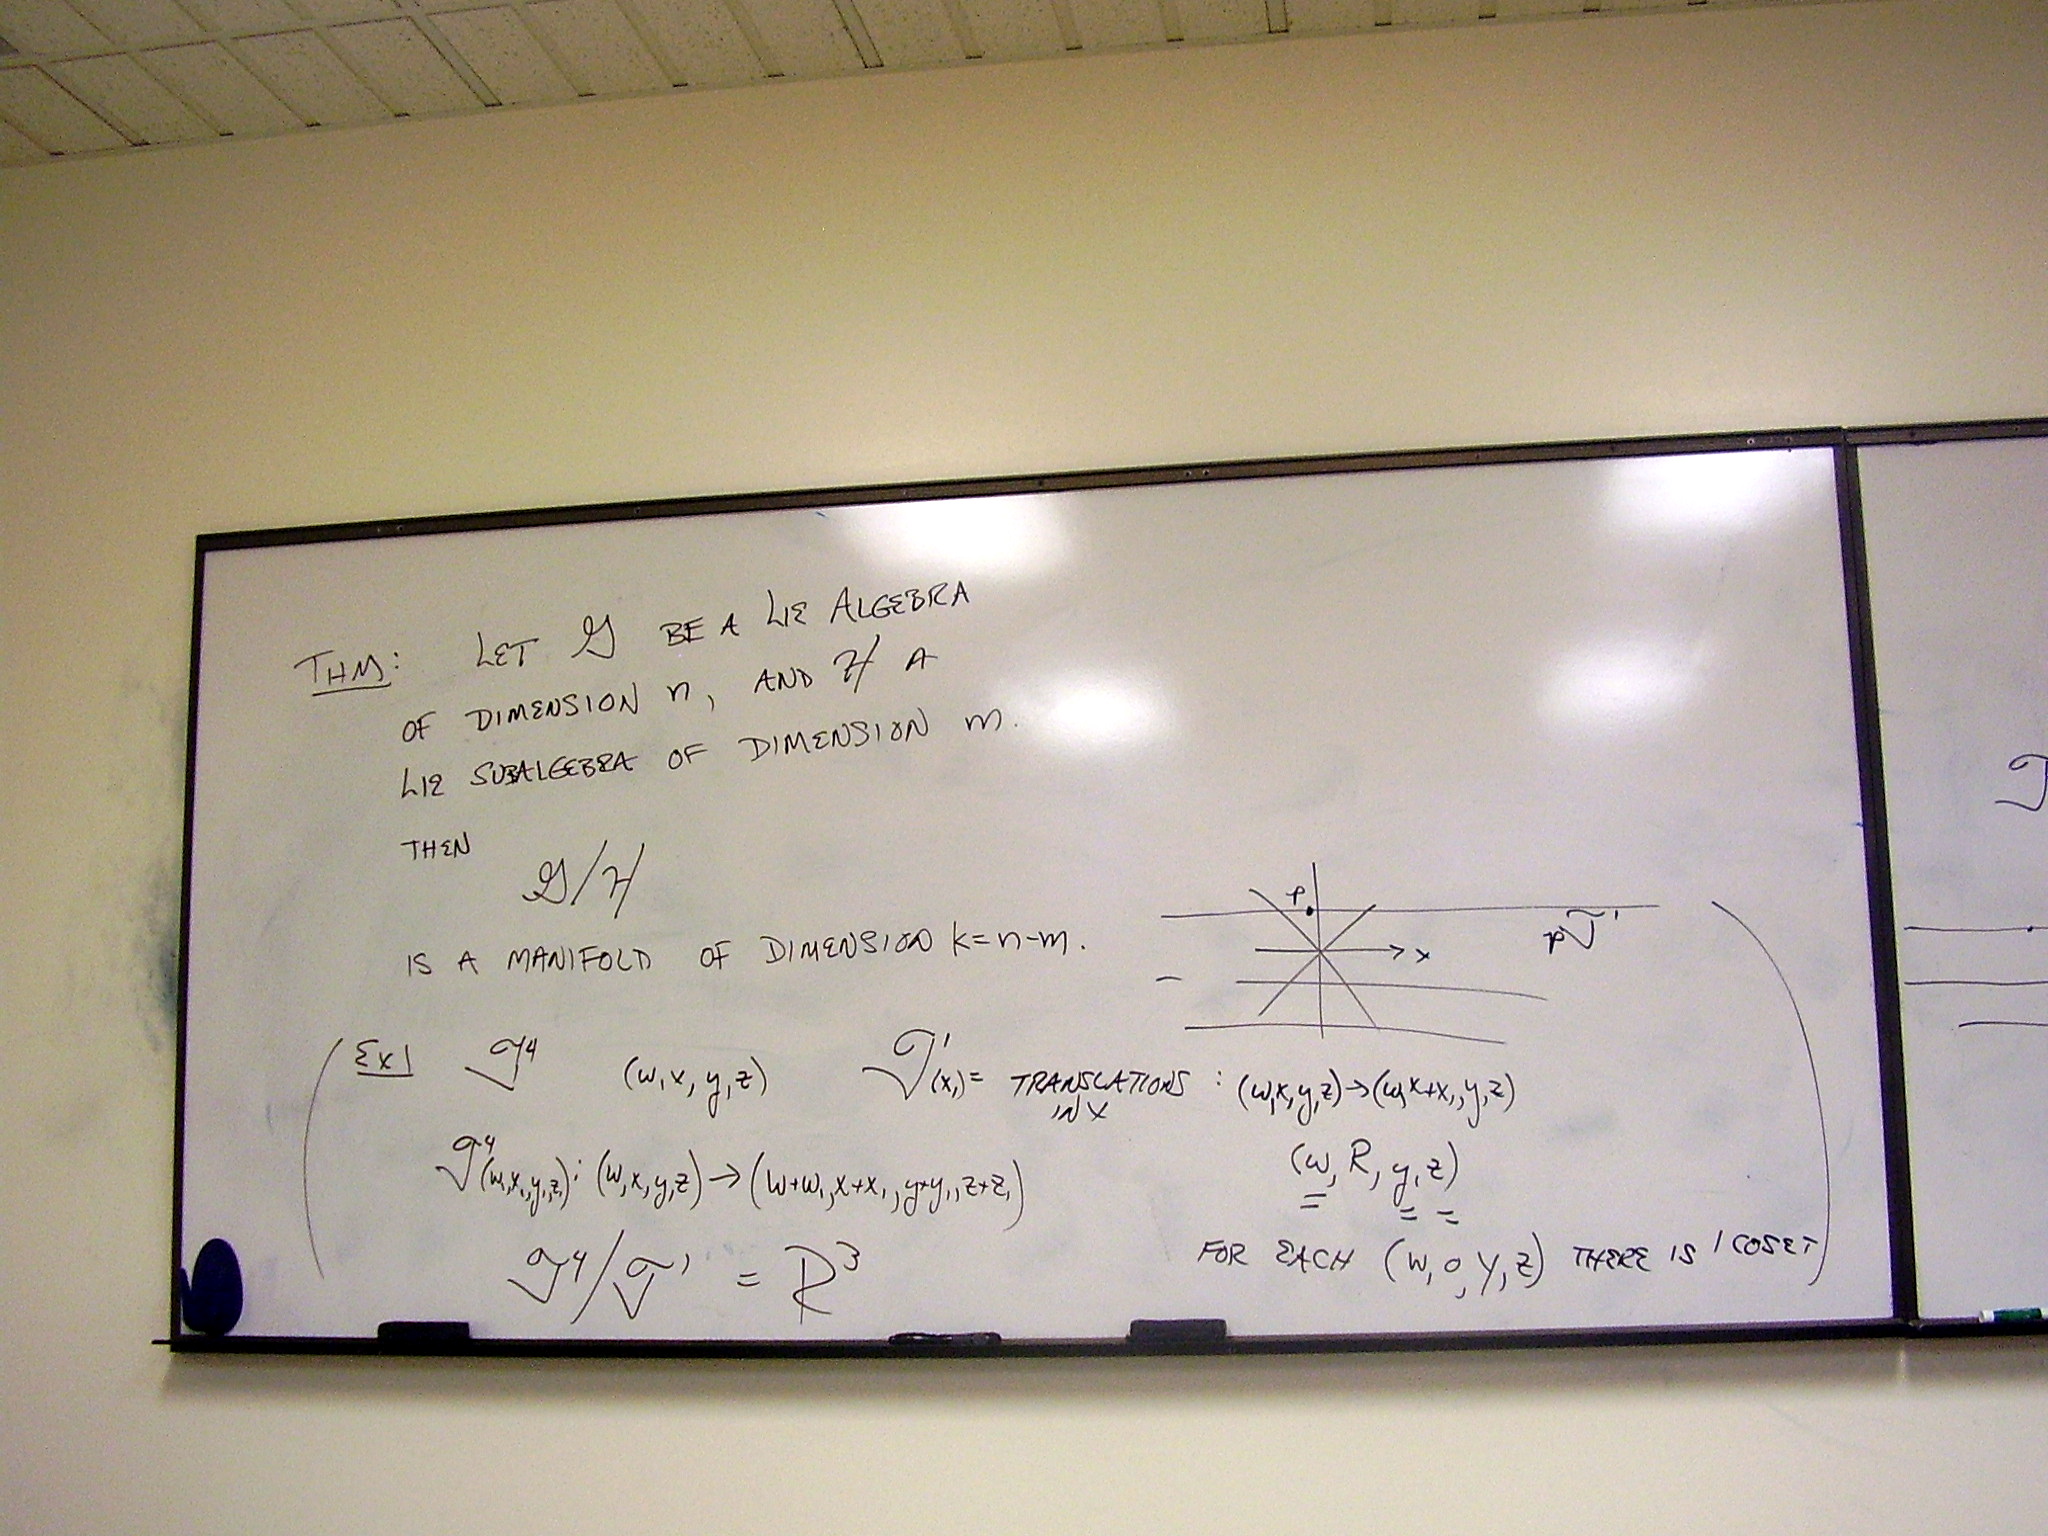 THM: LET 𝒢 BE A LIE ALGEBRA
OF DIMENSION n, AND ℋ A
LIE SUBALGEBRA OF DIMENSION m.
THEN
𝒢/ℋ
IS A MANIFOLD OF DIMENSION k=n-m.
p
x
p𝒯¹
Ex1 𝒯⁴ (w,x,y,z) 𝒯¹(x₁) = TRANSLATIONS IN X : (w,x,y,z)→(w,x+x₁,y,z)
𝒯⁴(w₁,x₁,y₁,z₁): (w,x,y,z)→(w+w₁,x+x₁,y+y₁,z+z₁)
(w,R,y,z)
𝒯⁴/𝒯¹ = R³
FOR EACH (w,0,y,z) THERE IS 1 COSET
𝒯